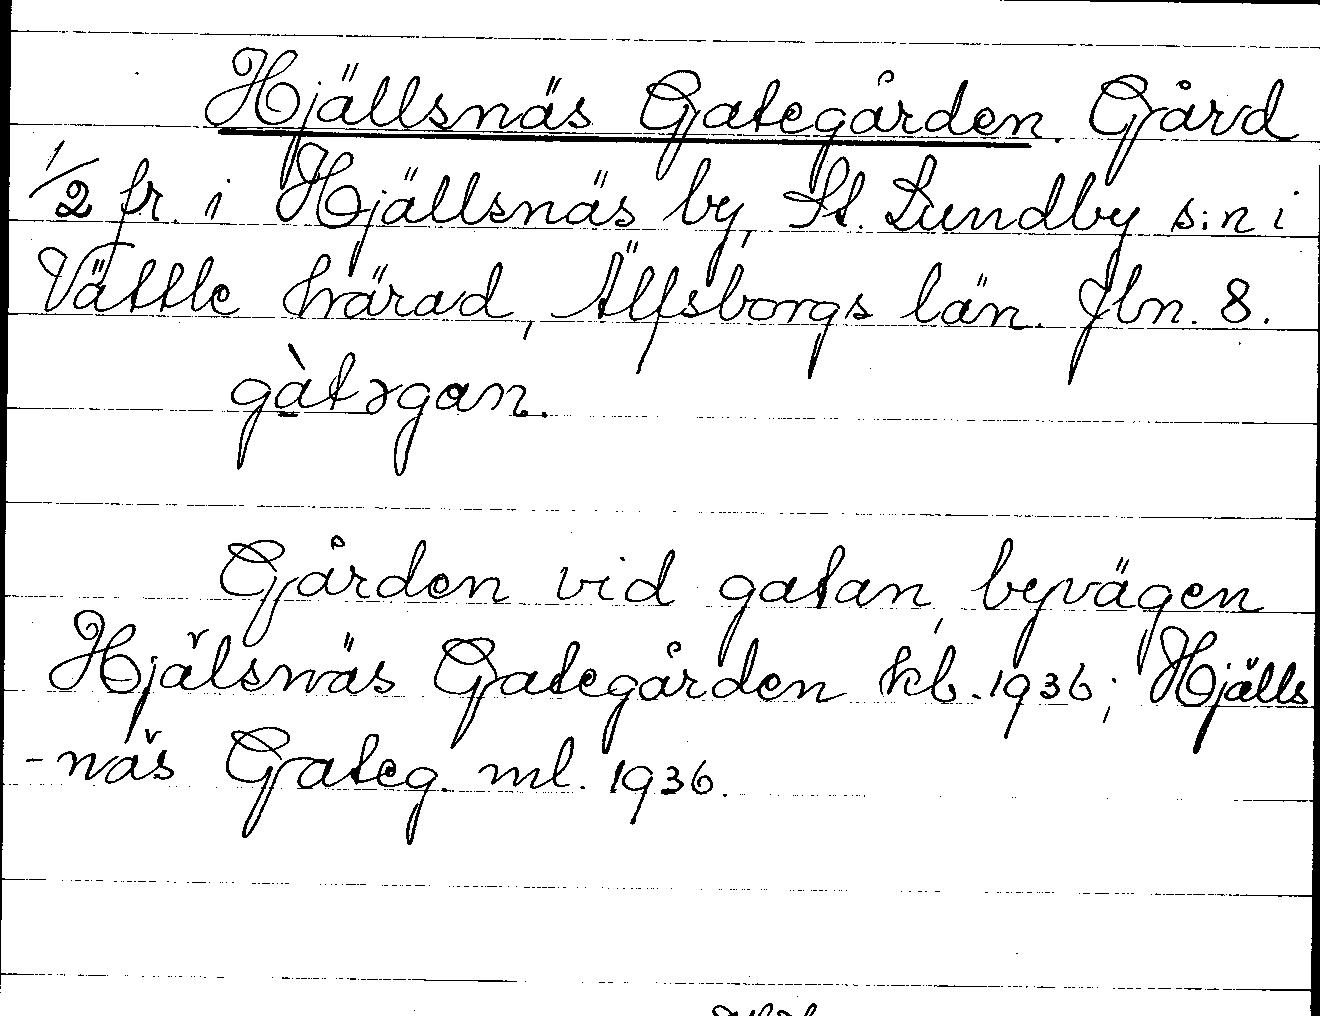 Hjällsnäs Gategården. Gård
1/2 fr. i Hjällsnäs by, St. Lundby s:n i
Vättle härad, Älfsborgs län. Jbn. 8.
gàtəgan.
Gården vid gatan, byvägen
Hjälsnäs Gategården kb. 1936; Hjälls
-näs Gateg. ml. 1936.